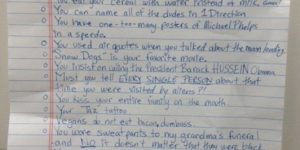 You eat your cereal with water instead of milk.
You can name all of the dudes in 1 Direction
You have one-too-many posters of Michael Phelps
in a speedo.
You used air quotes when you talked about the moon landing.
"Snow Dogs" is your favorite movie.
You insist on calling the president Barack HUSSEIN Obama
Must you tell EVERY SINGLE PERSON about that
time you were visited by aliens?!
You kiss your entire family on the mouth.
Your Taz tattoo
Vegans do not eat bacon, dumbass.
You wore sweatpants to my grandma's funeral
and NO it doesn't matter that they were black